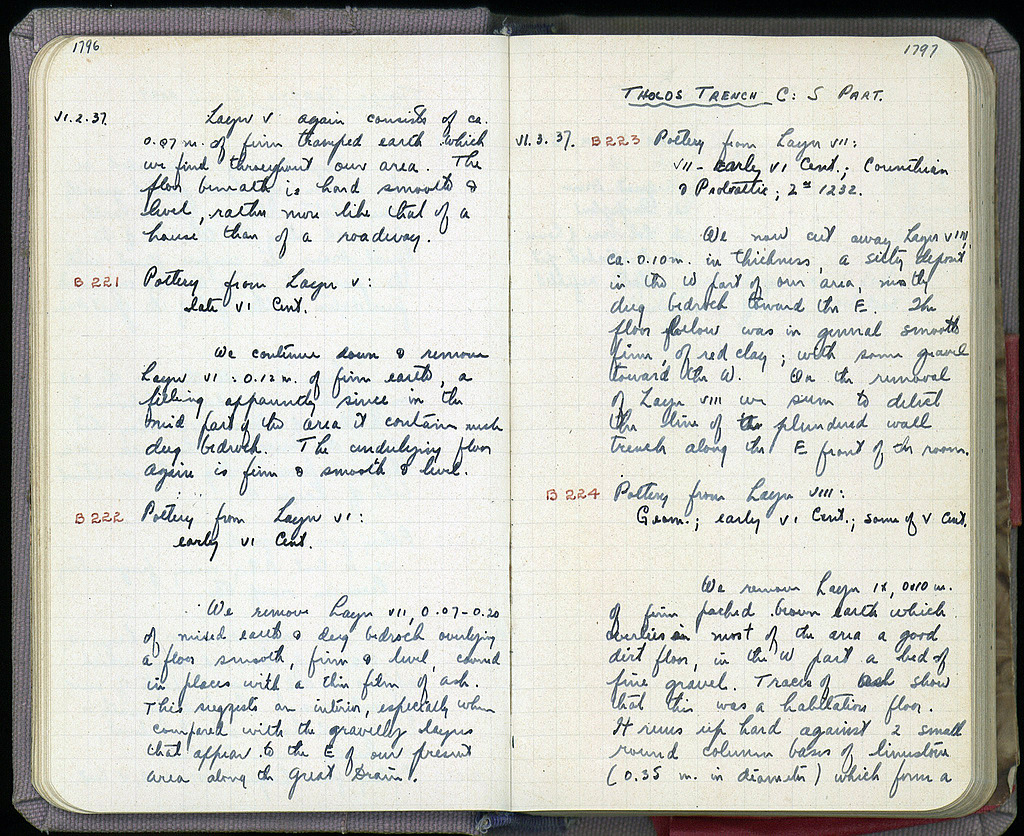 1796
VI.2.37. Layer V again consists of ca.
0.07 m. of firm tramped earth which
we find throughout our area. The
floor beneath is hard smooth &
level, rather more like that of a
house than of a roadway.
B 221 Pottery from Layer V:
late VI Cent.
We continue down & remove
Layer VI: 0.12 m. of firm earth, a
filling apparently since in the
mid part of the area it contains much
dug bedrock. The underlying floor
again is firm & smooth & level.
B 222 Pottery from Layer VI:
early VI Cent.
We remove Layer VII, 0.07-0.20
of mixed earth & dug bedrock overlying
a floor smooth, firm & level, covered
in places with a thin film of ash.
This suggests an interior, especially when
compared with the gravelly layers
that appear to the E of our present
area along the Great Drain.
1797
THOLOS TRENCH C: S PART.
VI.3.37. B 223 Pottery from Layer VII:
VII - early VI Cent.; Corinthian
& Protoattic; 1232.
We now cut away Layer VIII,
ca. 0.10 m. in thickness, a silty deposit
in the W part of our area, mostly
dug bedrock toward the E. The
floor below was in general smooth
firm, of red clay; with some gravel
toward the W. On the removal
of Layer VIII we seem to detect
the line of the plundered wall
trench along the E front of the room.
B 224 Pottery from Layer VIII:
Geom.; early VI Cent.; some of V Cent.
We remove Layer IX, 0.10 m.
of firm packed brown earth which
overlies in most of the area a good
dirt floor, in the W part a bed of
fine gravel. Traces of ash show
that this was a habitation floor.
It runs up hard against 2 small
round column bases of limestone
(0.35 m. in diameter) which form a